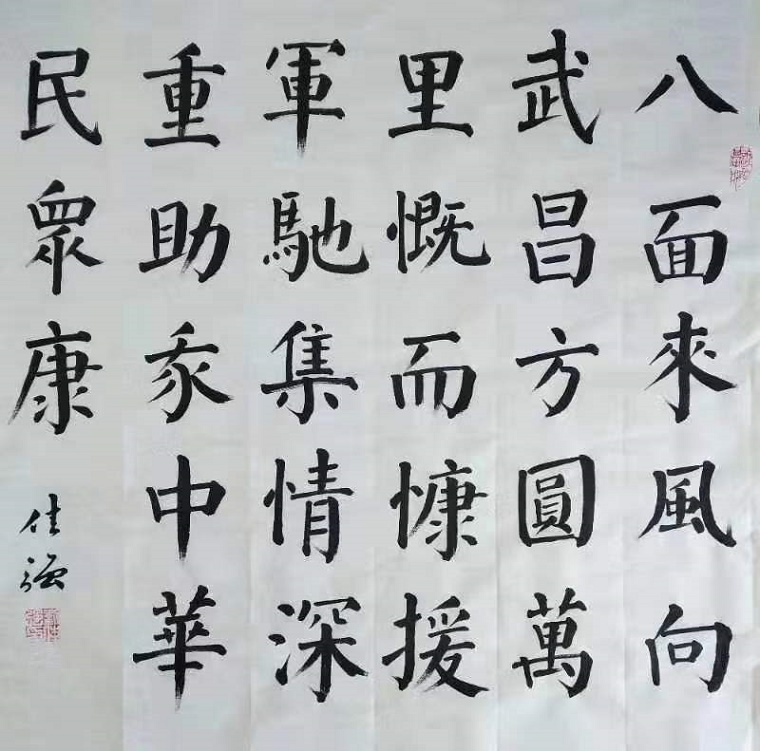 八面來風向
武昌方圓萬
里慨而慷援
軍馳集情深
重助我中華
民眾康
佳強